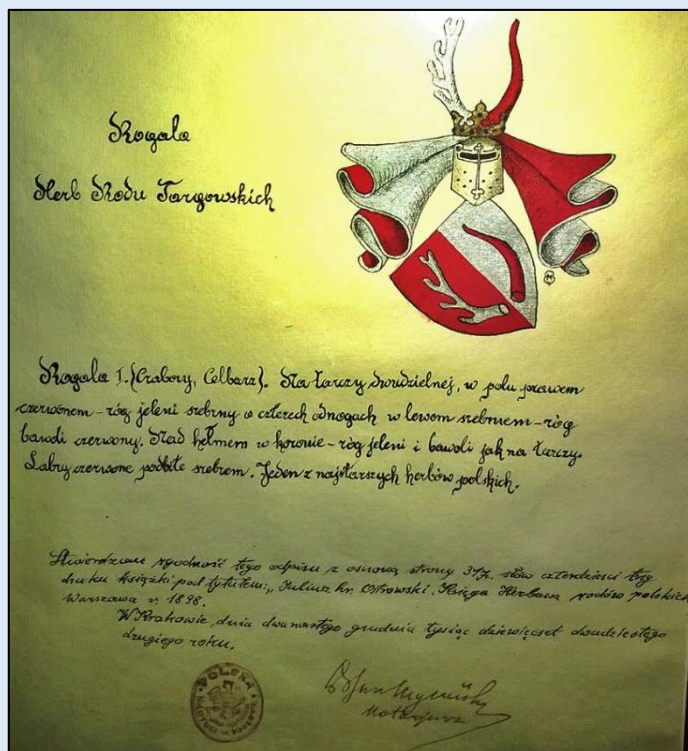 Rogala
Herb Rodu Targowskich
Rogala I. (Czabory, Celbarz). Na tarczy dwudzielnej, w polu prawem
czerwonem – róg jeleni srebrny o czterech odnogach w lewem srebrnem – róg
bawoli czerwony. Nad hełmem w koronie – róg jeleni i bawoli jak na tarczy.
Labry czerwone podbite srebrem. Jeden z najstarszych herbów polskich.
zgodność tego odpisu z osnową strony 317. słów czterdzieści trzy
druku książki pod tytułem: „Juliusz hr. Ostrowski. Księga Herbowa rodów polskich
Warszawa r. 1898.
W Krakowie, dnia dwunastego grudnia tysiąc dziewięćset dwudziestego
drugiego roku.
POLSKA
Notarjusz